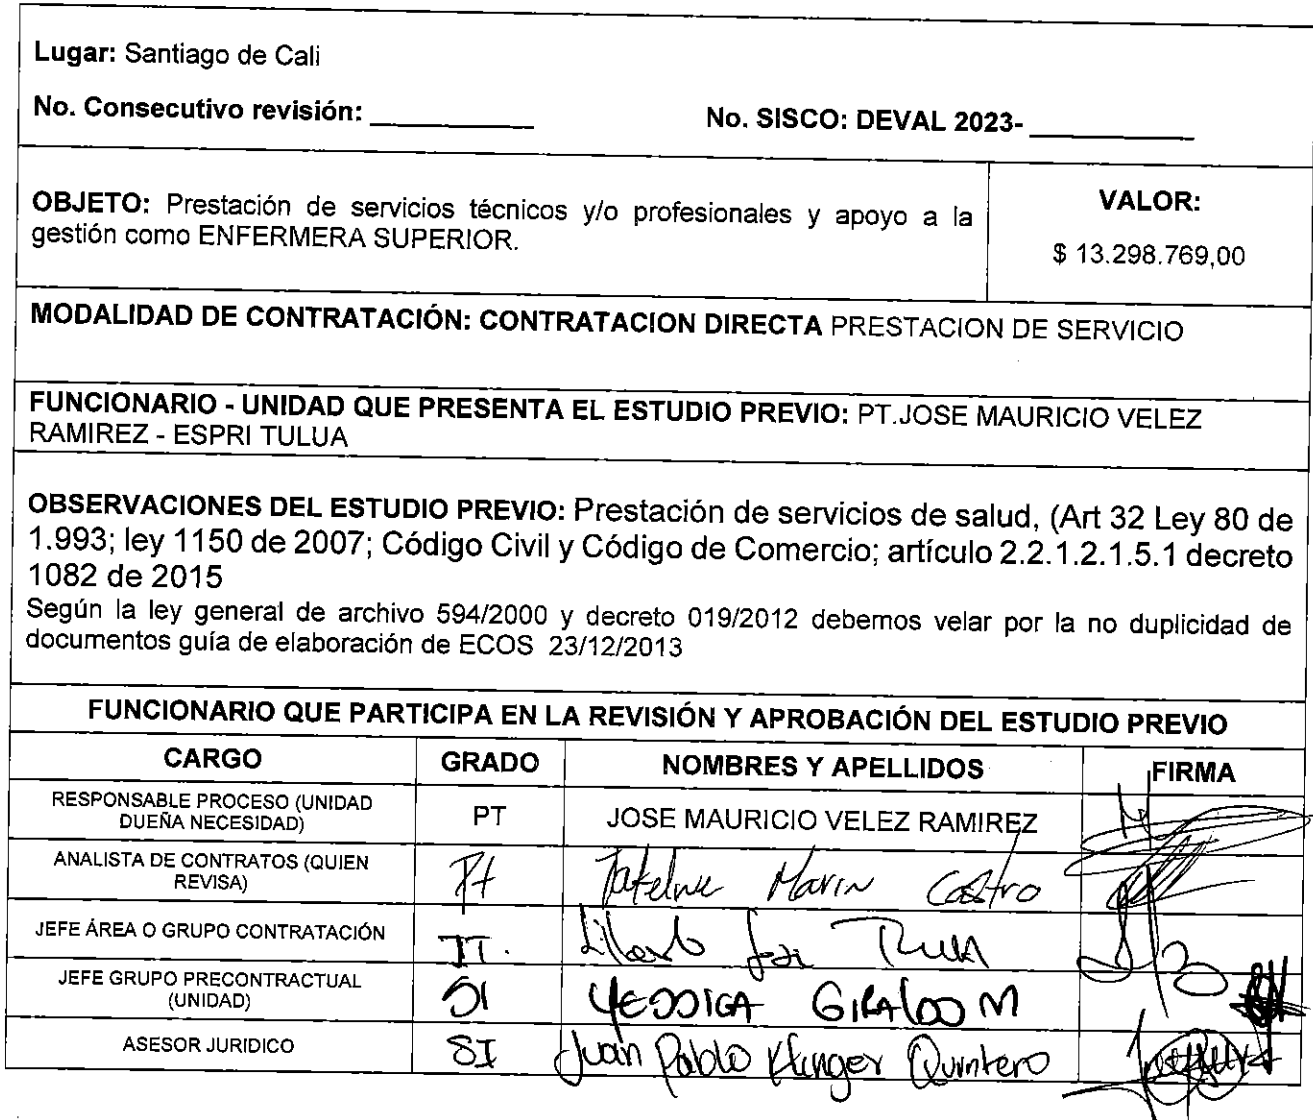 Lugar: Santiago de Cali
No. Consecutivo revisión: __________ No. SISCO: DEVAL 2023- __________
OBJETO: Prestación de servicios técnicos y/o profesionales y apoyo a la
gestión como ENFERMERA SUPERIOR.
VALOR:
$ 13.298.769,00
MODALIDAD DE CONTRATACIÓN: CONTRATACION DIRECTA PRESTACION DE SERVICIO
FUNCIONARIO - UNIDAD QUE PRESENTA EL ESTUDIO PREVIO: PT.JOSE MAURICIO VELEZ
RAMIREZ - ESPRI TULUA
OBSERVACIONES DEL ESTUDIO PREVIO: Prestación de servicios de salud, (Art 32 Ley 80 de
1.993; ley 1150 de 2007; Código Civil y Código de Comercio; artículo 2.2.1.2.1.5.1 decreto
1082 de 2015
Según la ley general de archivo 594/2000 y decreto 019/2012 debemos velar por la no duplicidad de
documentos guía de elaboración de ECOS 23/12/2013
FUNCIONARIO QUE PARTICIPA EN LA REVISIÓN Y APROBACIÓN DEL ESTUDIO PREVIO
CARGO GRADO NOMBRES Y APELLIDOS FIRMA
RESPONSABLE PROCESO (UNIDAD
DUEÑA NECESIDAD)
PT JOSE MAURICIO VELEZ RAMIREZ
ANALISTA DE CONTRATOS (QUIEN
REVISA)
Pt Marin Castro
JEFE ÁREA O GRUPO CONTRATACIÓN
IT.
JEFE GRUPO PRECONTRACTUAL
(UNIDAD)
SI YESSICA GIRALDO M
ASESOR JURIDICO
SI Juan Pablo Klinger Quintero